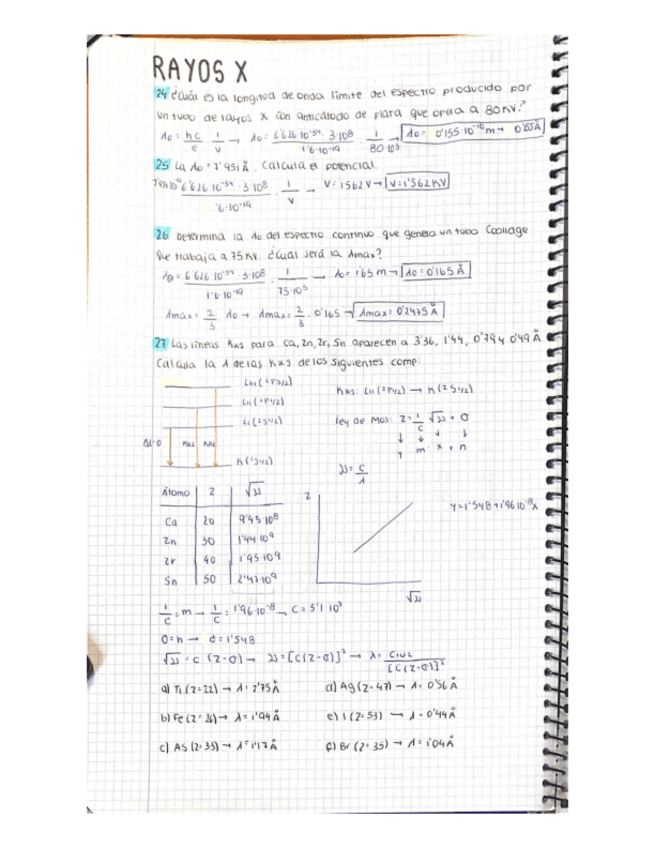 RAYOS X
24 ¿Cuál es la longitud de onda límite del espectro producido por
un tubo de rayos X con anticátodo de plata que opera a 80 KV?
λ0 = hc/e · 1/V → λ0 = 6'626·10^-34 · 3·10^8 / 1'6·10^-19 · 1/80·10^3 → λ0 = 0'155·10^-10 m →
25 La λ0 = 7'951 Å. Calcula el potencial.
6'626·10^-34 · 3·10^8 / '6·10^-19 · 1/V → V = 1562 V → V = 1'562 KV
26 Determina la λ0 del espectro continuo que genera un tubo Coolidge
que trabaja a 75 KV. ¿Cuál será la λmax?
λ0 = 6'626·10^-34 · 3·10^8 / 1'6·10^-19 · 1/75·10^3 → λ0 = 1'65 m → λ0 = 0'165 Å
λmax = 2/3 λ0 → λmax = 2/3 · 0'165 → λmax = 0'2475 Å
27 Las líneas Kα1 para Ca, Zn, Zr, Sn aparecen a 3'36, 1'44, 0'79 y 0'49 Å
Calcula la λ de las Kα1 de los siguientes comp:
LIII (2P3/2)
LII (2P1/2)
LI (2S1/2)
K (1S1/2)
ΔL=0 Kα2 Kα1
Kα1: LII (2P1/2) → K (2S1/2)
Ley de Mos: Z = 1/C √υ + σ
↓ ↓ ↓ ↓
Y m x + n
υ = c/λ
Átomo Z √υ
Ca 20 9'45·10^8
Zn 30 1'44·10^9
Zr 40 1'95·10^9
Sn 50 2'47·10^9
Z
√υ
Y = 1'548 + 1'96·10^-8 x
1/C = m → 1/C = 1'96·10^-8 → C = 5'1·10^7
σ = n → σ = 1'548
√υ = C (Z-σ) → υ = [C(Z-σ)]² → λ = Cluz / [C(Z-σ)]²
a) Ti (Z=22) → λ = 2'75 Å
d) Ag (Z=47) → λ = 0'56 Å
b) Fe (Z=26) → λ = 1'94 Å
e) I (Z=53) → λ = 0'44 Å
c) As (Z=33) → λ = 1'17 Å
f) Br (Z=35) → λ = 1'04 Å